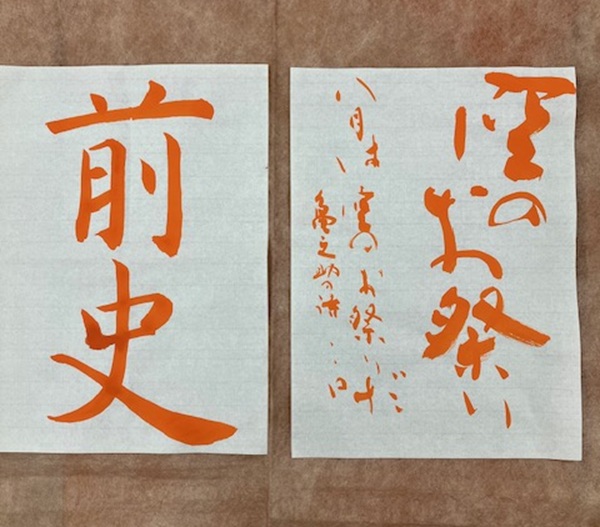 空のお祭り
八月は
空のお祭りだ
亀之助の詩
前史